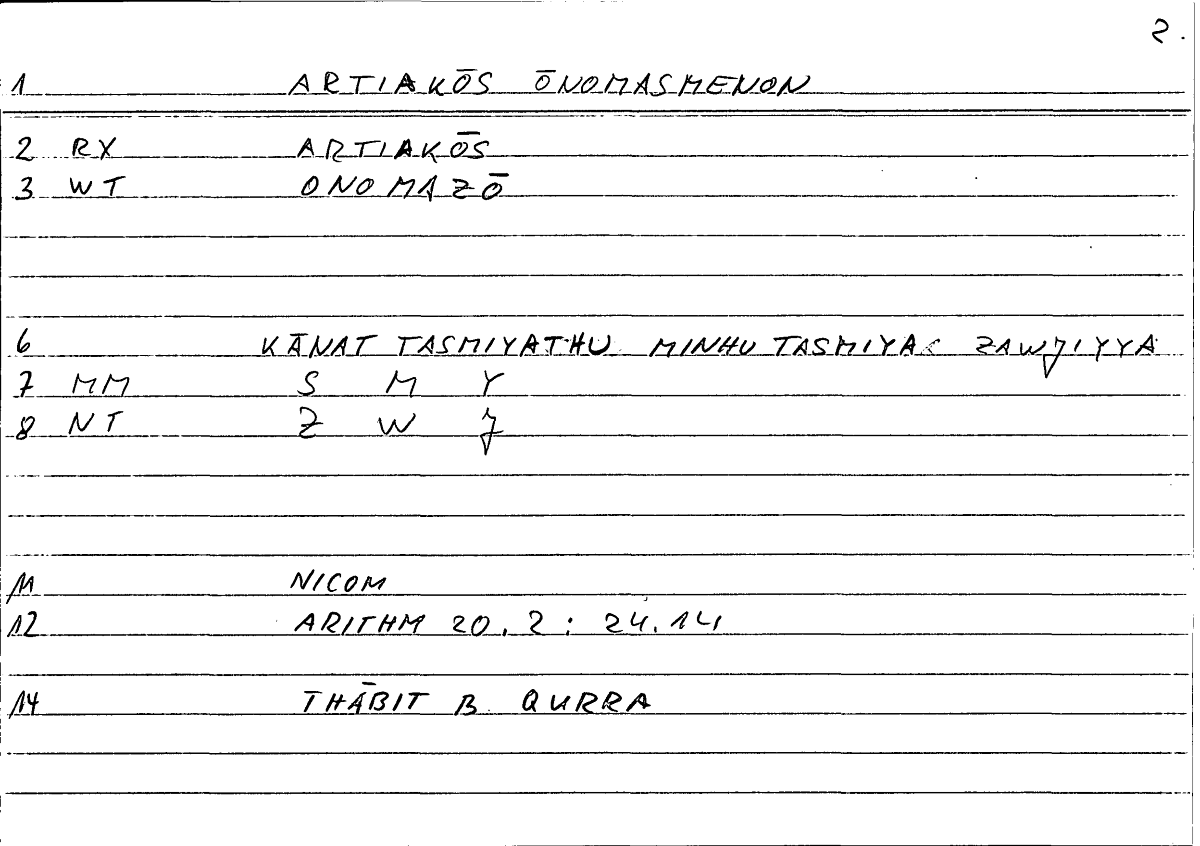 2.
1 ARTIAKŌS ŌNOMASMENON
2 RX ARTIAKŌS
3 WT ONOMAZŌ
6 KĀNAT TASMIYATHU MINHU TASMIYA ZAWJIYYA
7 MM S M Y
8 NT Z W J
11 NICOM
12 ARITHM 20.2 : 24.14
14 THĀBIT B. QURRA